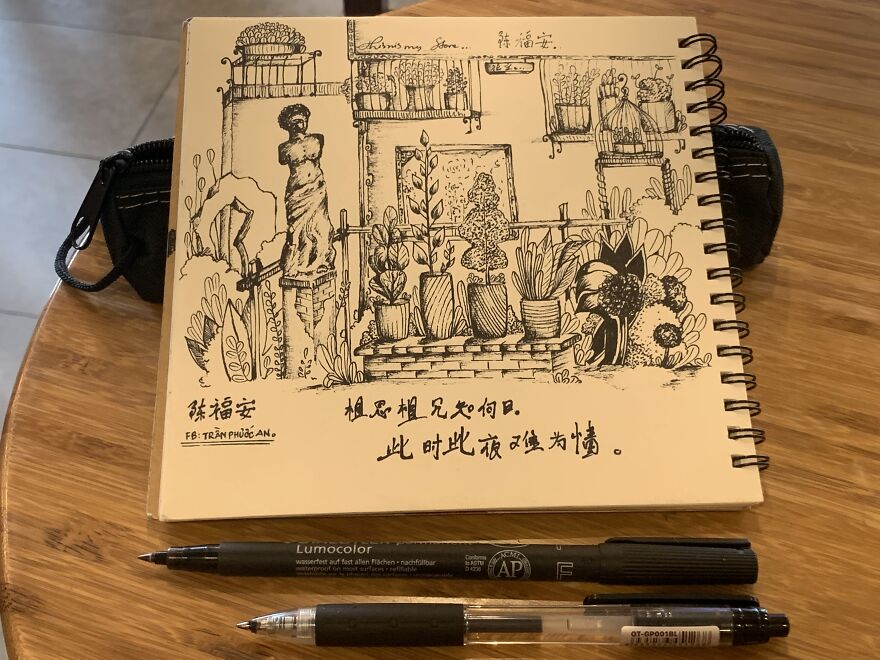 this is my Store...
陈福安.
陈福安
FB: TRẦN PHƯỚC AN.
相思相见知何日.
此时此夜难为情。
Lumocolor
wasserfest auf fast allen Flächen · nachfüllbar
waterproof on most surfaces · refillable
Conforms
to ASTM
D 4236
ACMI
AP
F
OT-GP001BL